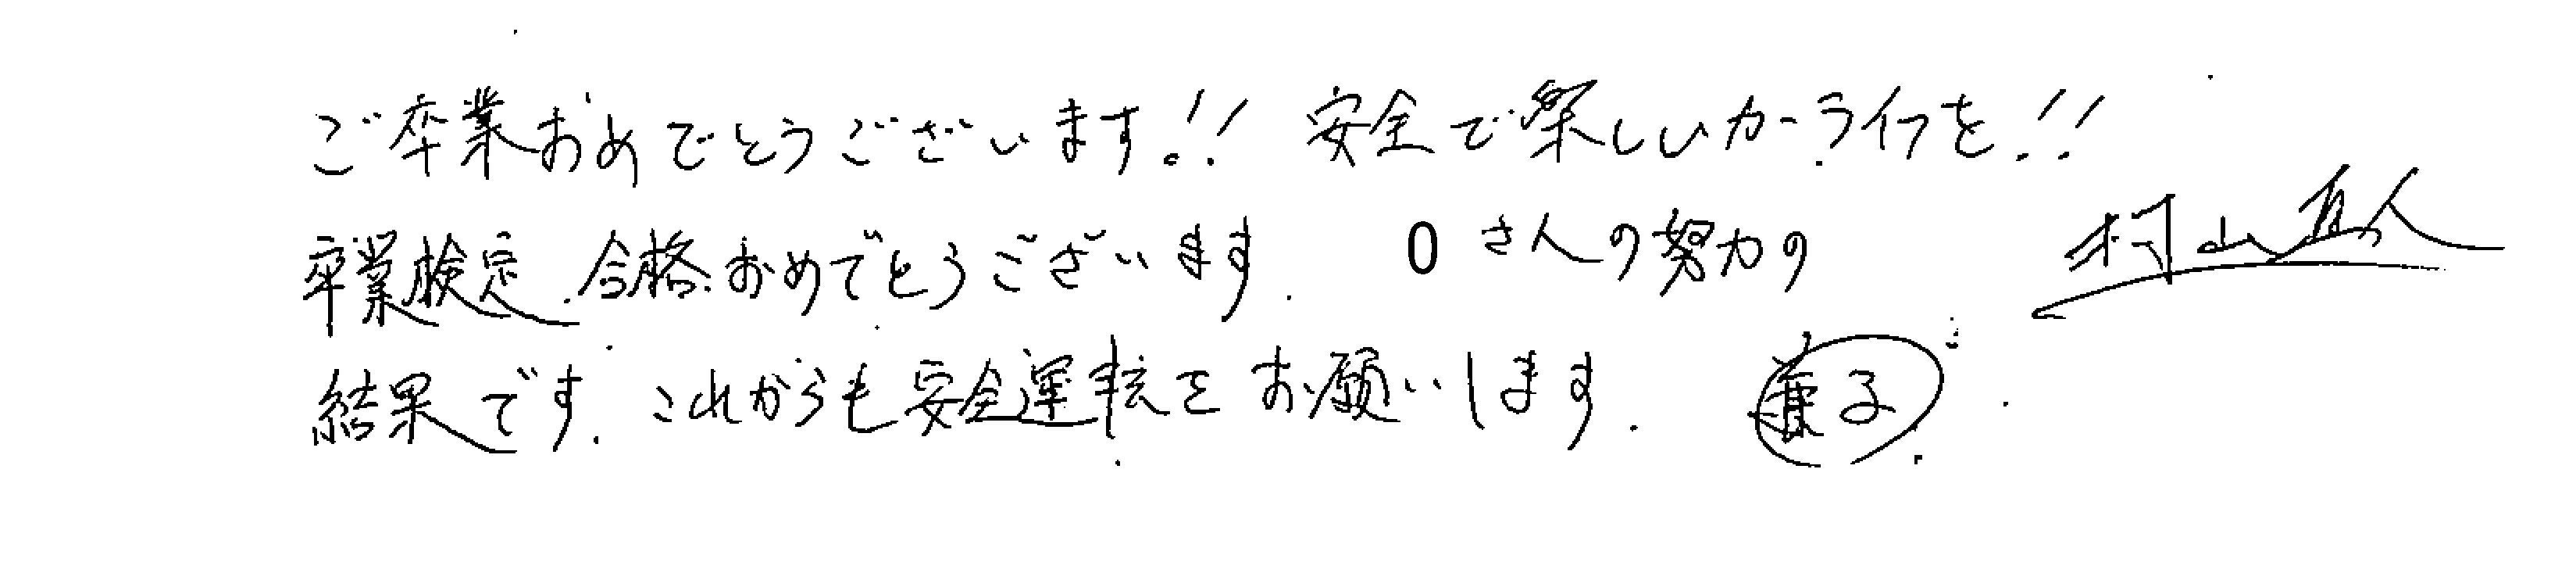 ご卒業おめでとうございます!! 安全で楽しいカーライフを!!
村山直人
卒業検定、合格おめでとうございます. 0 さんの努力の
結果です. これからも安全運転をお願いします. 兼子